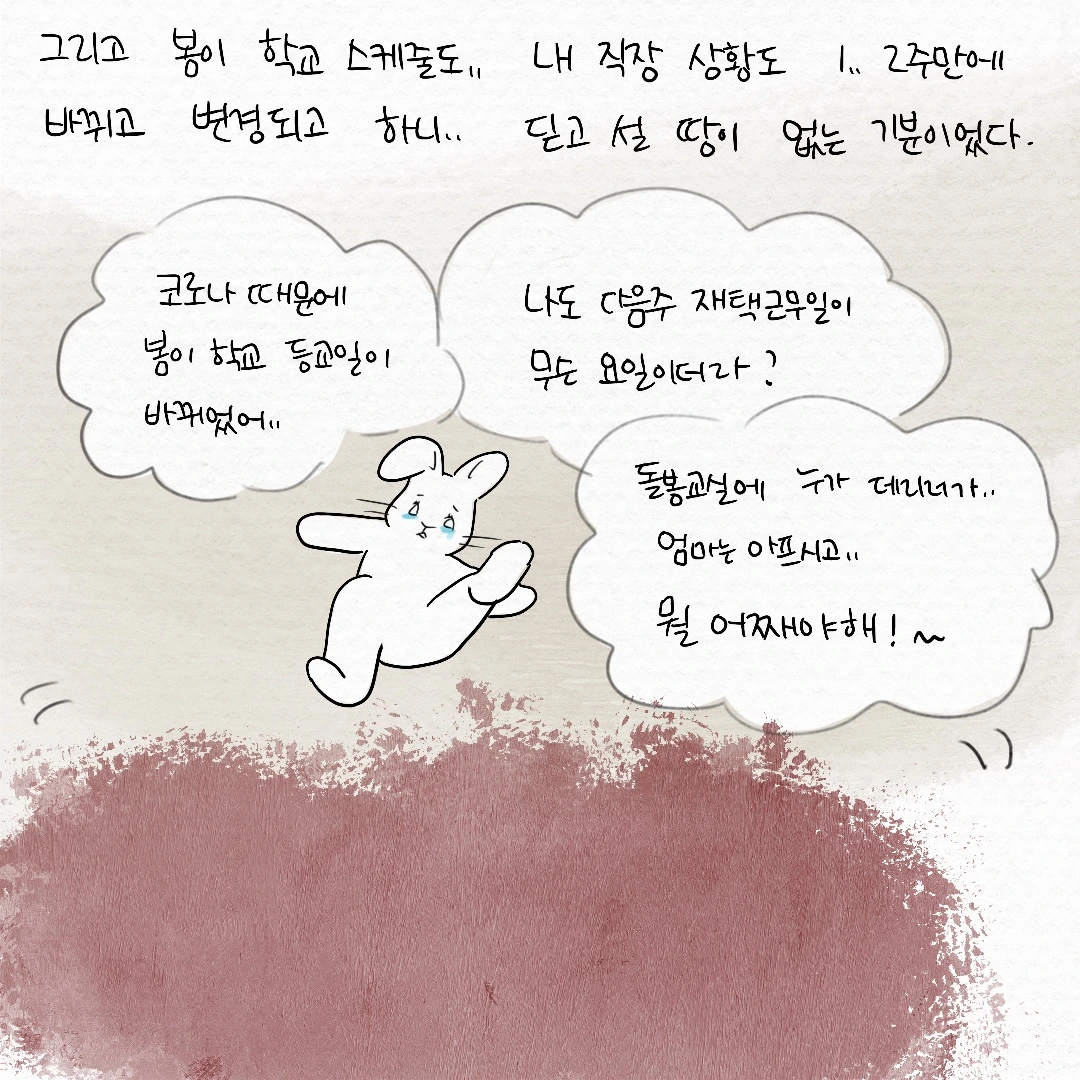 그리고 봄이 학교 스케줄도,, 내 직장 상황도 1.. 2주만에
바뀌고 변경되고 하니.. 딛고 설 땅이 없는 기분이었다.
코로나 때문에
봄이 학교 등교일이
바뀌었어..
나도 다음주 재택근무일이
무슨 요일이더라?
돌봄교실에 누가 데리러가..
엄마는 아프시고..
뭘 어째야해! ~